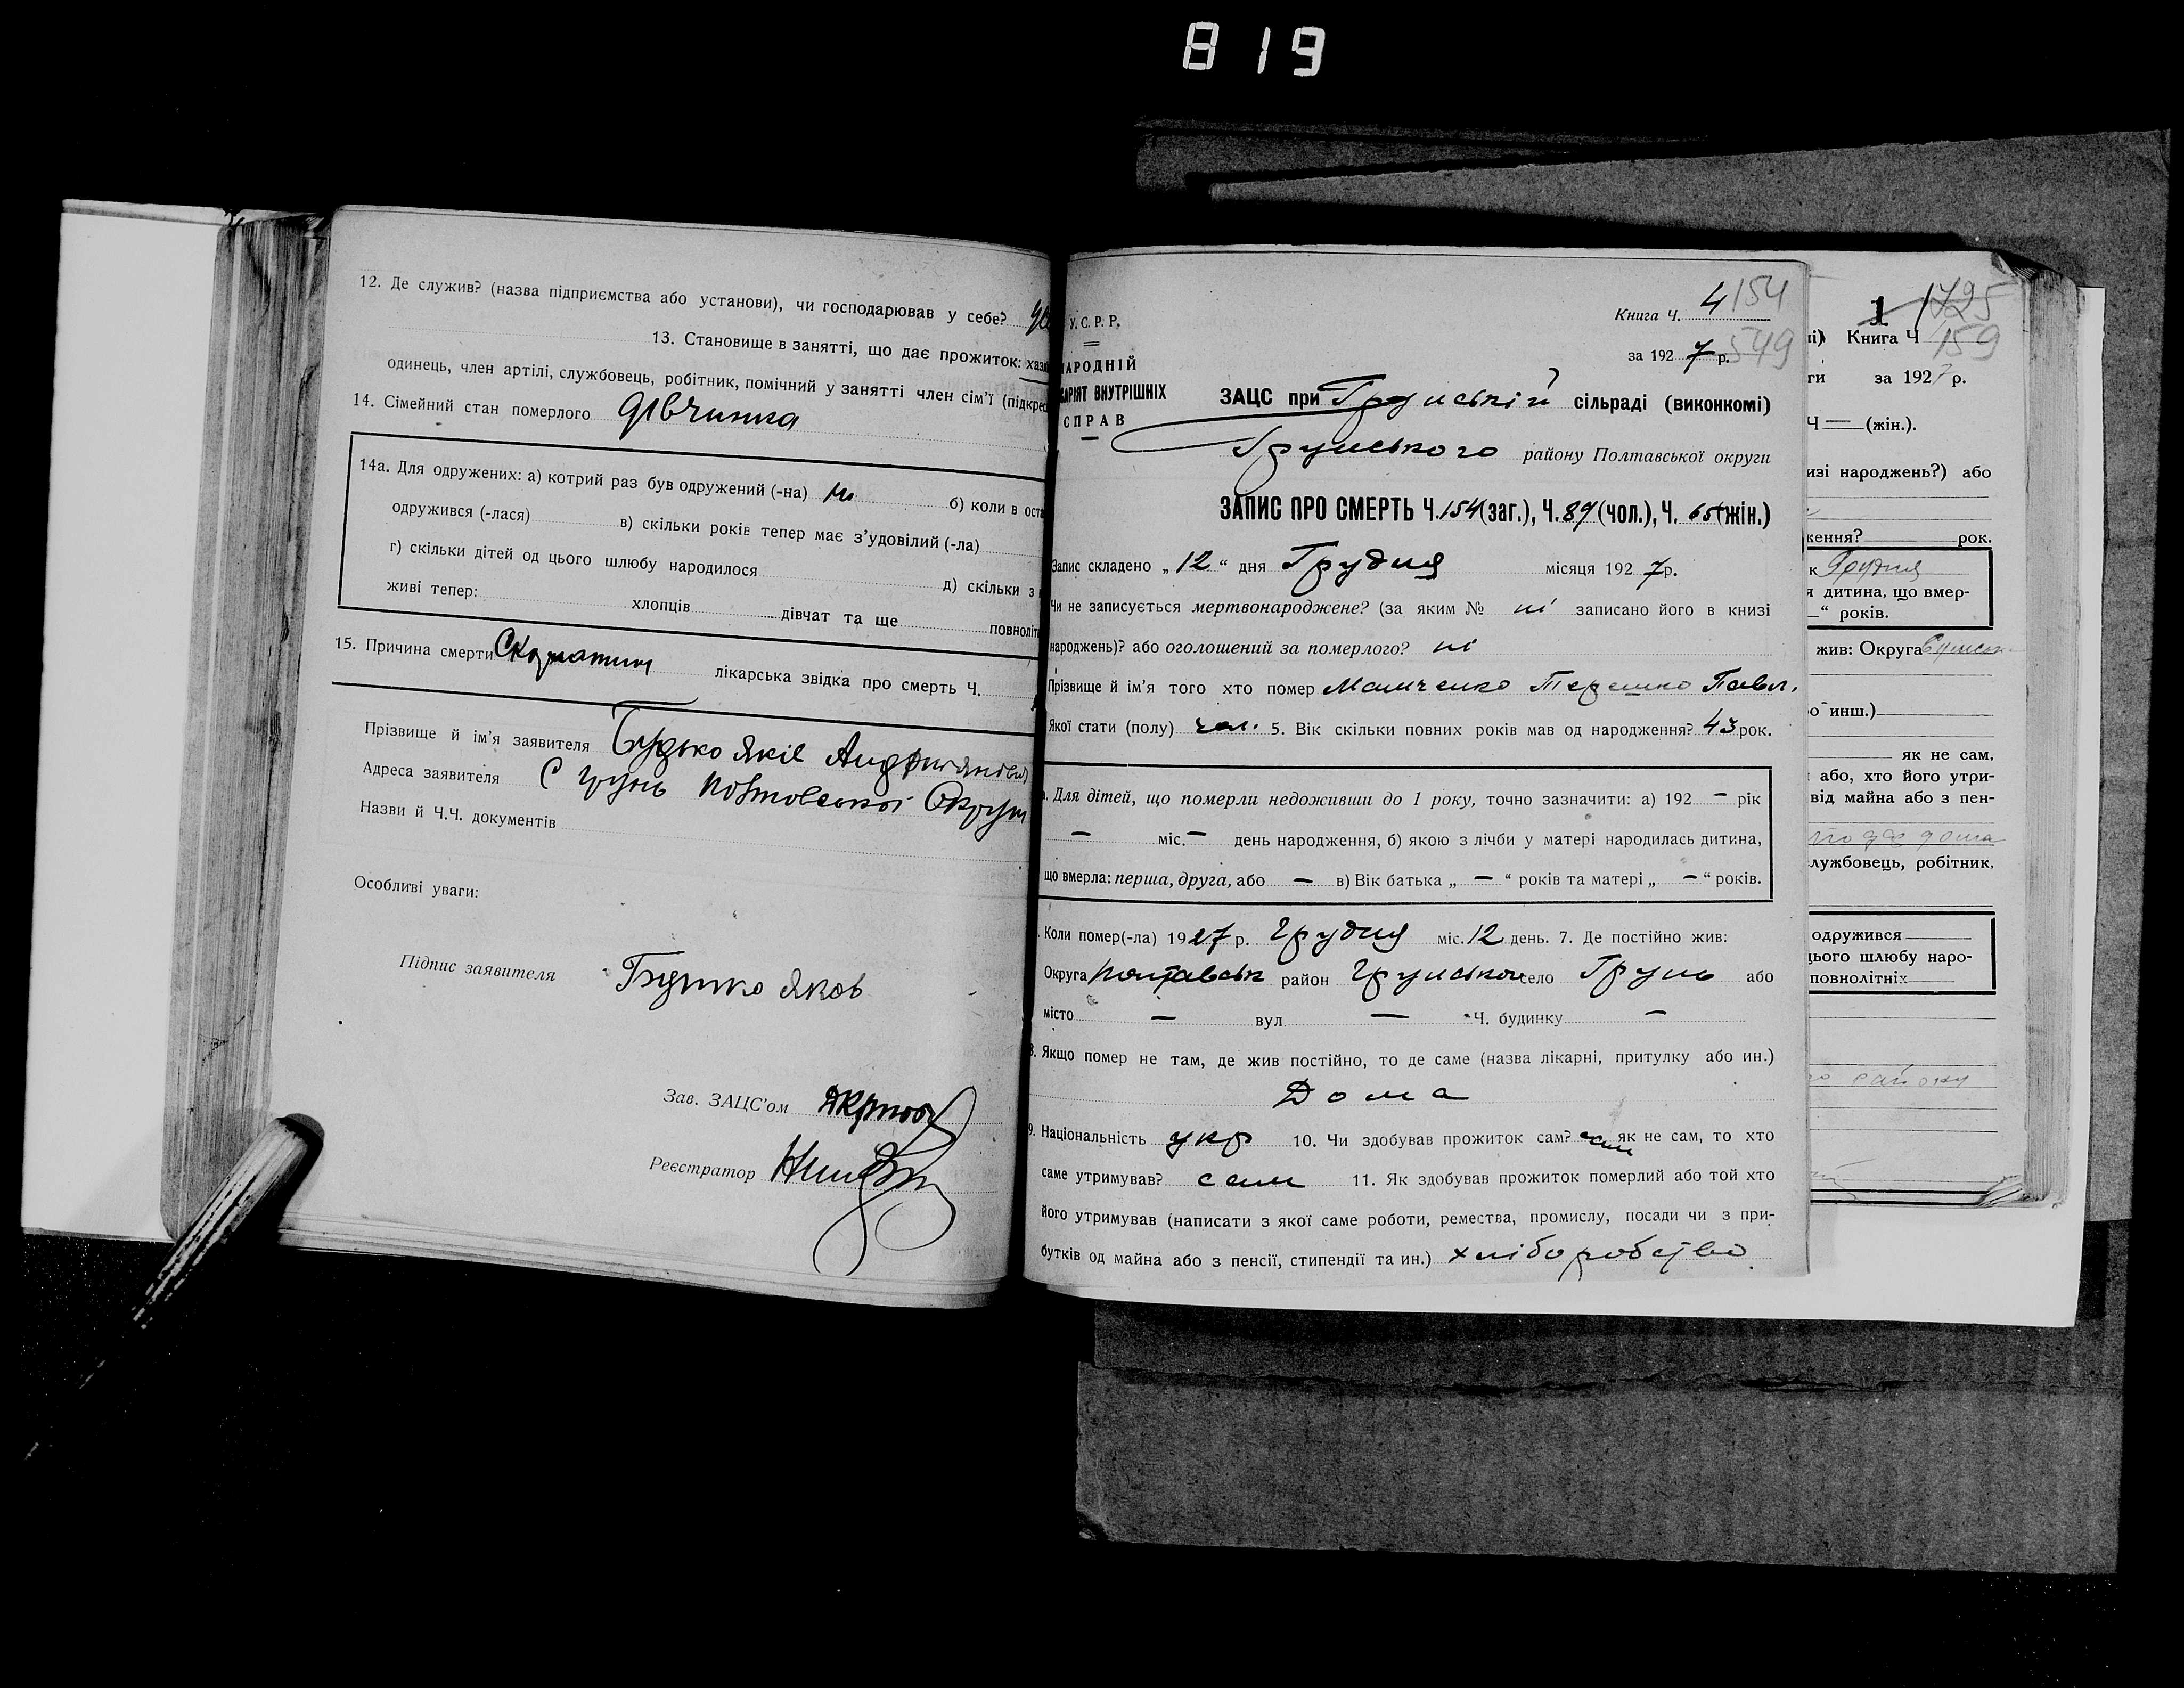 819
12. Де служив? (назва підприємства або установи), чи господарював у себе?
13. Становище в занятті, що дає прожиток: хазя
одинець, член артілі, службовець, робітник, помічний у занятті член сім'ї (підкрес
14. Сімейний стан померлого дівчинка
14а. Для одружених: а) котрий раз був одружений (-на) ні б) коли в оста
одружився (-лася) в) скільки років тепер має з'удовілий (-ла)
г) скільки дітей од цього шлюбу народилося д) скільки з
живі тепер: хлопців дівчат та ще повноліт
15. Причина смерти Скорлатин лікарська звідка про смерть Ч.
Прізвище й ім'я заявителя Будько Яків
Адреса заявителя С Грунь Полтовської Округи
Назви й Ч.Ч. документів
Особливі уваги:
Підпис заявителя Будько Яков
Зав. ЗАЦС'ом
Реєстратор
У.С.Р.Р.
НАРОДНІЙ
САРІЯТ ВНУТРІШНІХ
СПРАВ
Книга Ч. 4 154
за 1927 р. 549
ЗАЦС при Грунській сільраді (виконкомі)
Грунського району Полтавської округи
ЗАПИС ПРО СМЕРТЬ Ч. 154 (заг.), Ч. 89 (чол.), Ч. 65 (жін.)
Запис складено „12“ дня Грудня місяця 1927 р.
Чи не записується мертвонароджене? (за яким № ні записано його в книзі
народжень)? або оголошений за померлого? ні
Прізвище й ім'я того хто помер Мамченко Терешко Павл.
Якої стати (полу) чол. 5. Вік скільки повних років мав од народження? 43 рок.
Для дітей, що померли недоживши до 1 року, точно зазначити: а) 192 — рік
— міс. — день народження, б) якою з лічби у матері народилась дитина,
що вмерла: перша, друга, або — в) Вік батька „ — “ років та матері „ — “ років.
Коли помер(-ла) 1927 р. Грудня міс. 12 день. 7. Де постійно жив:
Округа Полтавськ район Грунського село Грунь або
місто — вул — Ч. будинку —
8. Якщо помер не там, де жив постійно, то де саме (назва лікарні, притулку або ин.)
Дома
9. Національність укр 10. Чи здобував прожиток сам? сам як не сам, то хто
саме утримував? сам 11. Як здобував прожиток померлий або той хто
його утримував (написати з якої саме роботи, ремества, промислу, посади чи з при-
бутків од майна або з пенсії, стипендії та ин.) хліборобство
1 1725
і) Книга Ч 159
ги за 1927 р.
Ч — (жін.).
изі народжень?) або
ження? рок.
к Грудня
я дитина, що вмер-
—“ років.
жив: Округа
о инш.)
як не сам,
або, хто його утри-
від майна або з пен-
лужбовець, робітник,
одружився
цього шлюбу наро-
повнолітніх
району